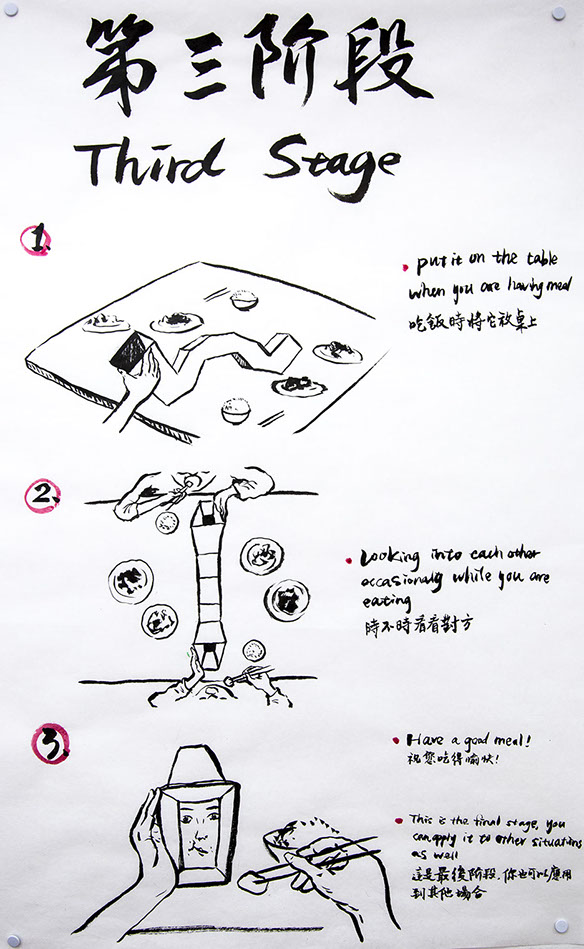 第三阶段
Third Stage
1.
• put it on the table
when you are having meal
吃飯時將它放桌上
2、
• Looking into each other
occasionaly while you are
eating
時不時看看對方
3、
• Have a good meal!
祝您吃得愉快!
• This is the final stage, you
can apply it to other situations
as well
這是最後階段，你也可以應用
到其他場合